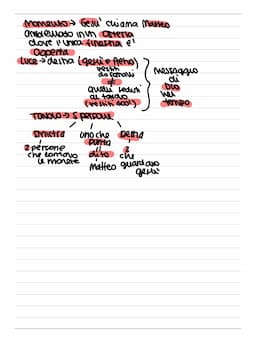 Momento → Gesù chiama Matteo
ambientato in un osteria
dove l'unica finestra è
coperta
Luce → destra (Gesù e Pietro)
vestiti
da romani
quelli seduti
al tavolo
(vestiti 600)
messaggio
di
Dio
nel
tempo
TAVOLO → 5 persone
sinistra uno che destra
punta
2 persone dito 2 che
che contano Matteo guardano
le monete Gesù